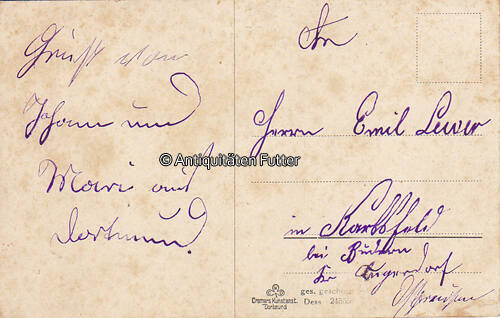 Gruß von
Johann und
Marie aus
Dortmund.
An
Herrn Emil Lewer
in Karlsfeld
bei Büdern
Kr
Ostpreußen
© Antiquitäten Futter
Cramers Kunstanst.
Dortmund
ges. geschützt
Dess